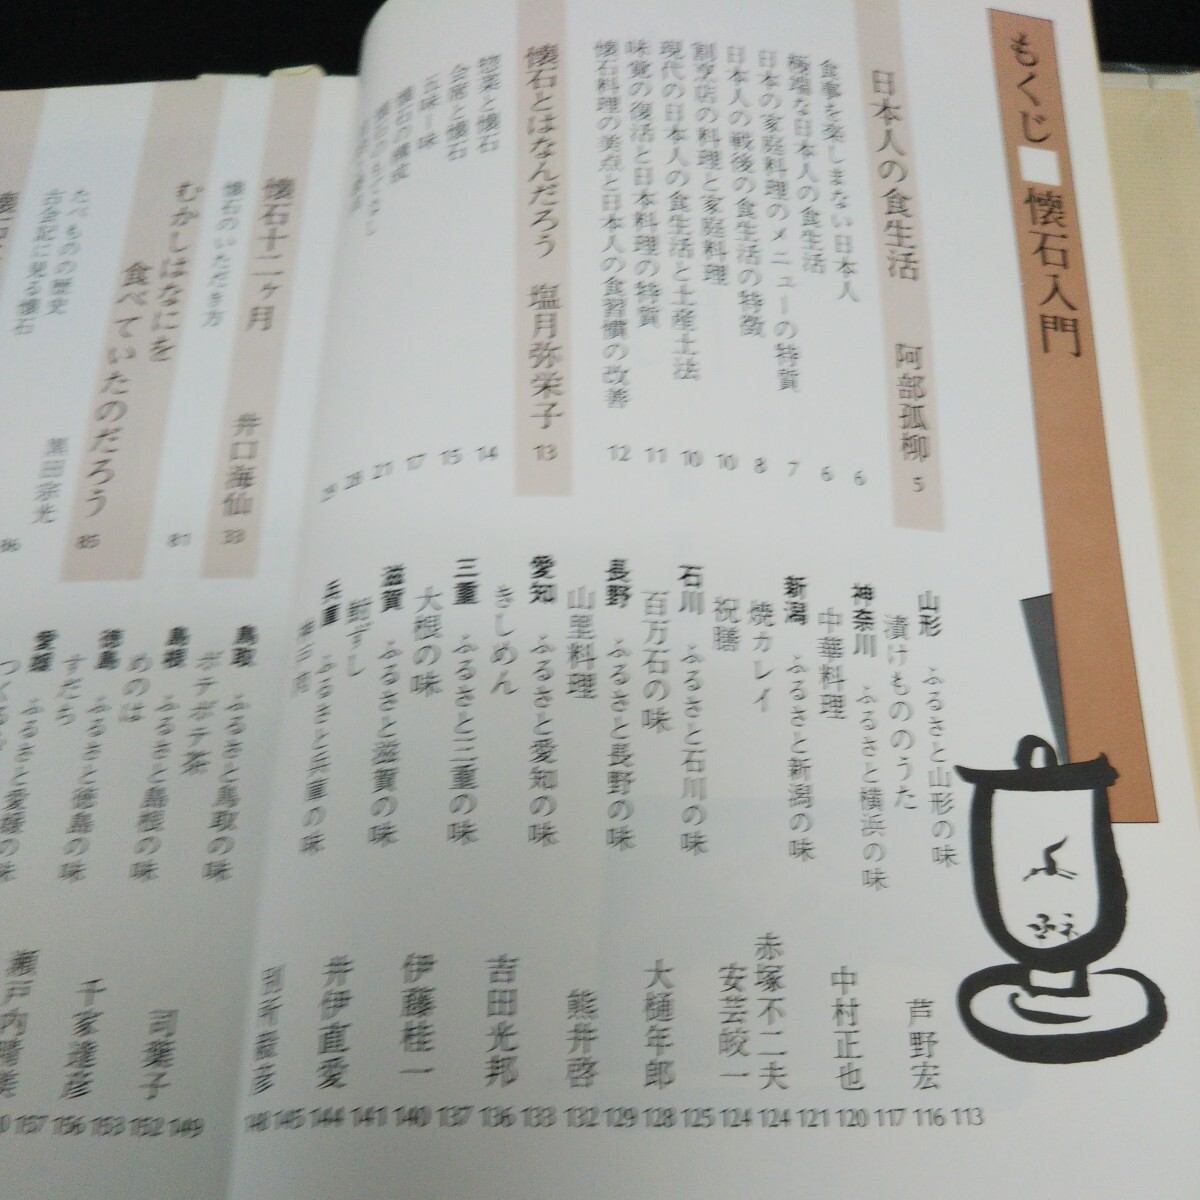 もくじ 懐石入門
日本人の食生活 阿部孤柳 5
食事を楽しまない日本人 6
極端な日本人の食生活 6
日本の家庭料理のメニューの特質 7
日本人の戦後の食生活の特徴 8
割烹店の料理と家庭料理 10
現代の日本人の食生活と土産土法 10
味覚の復活と日本料理の特質 11
懐石料理の美点と日本人の食習慣の改善 12
懐石とはなんだろう 塩月弥栄子 13
惣菜と懐石 14
会席と懐石 15
五味一味 17
懐石の構成 21
28
29
懐石十二ヶ月 井口海仙 33
懐石のいただき方 81
むかしはなにを
食べていたのだろう 85
黒田宗光
たべものの歴史 86
古会記に見る懐石
山形 ふるさと山形の味 113
漬けもののうた 芦野宏 116
神奈川 ふるさと横浜の味 117
中華料理 中村正也 120
新潟 ふるさと新潟の味 121
焼カレイ 赤塚不二夫 124
祝膳 安芸皎一 124
石川 ふるさと石川の味 125
百万石の味 大樋年郎 128
長野 ふるさと長野の味 129
山里料理 熊井啓 132
愛知 ふるさと愛知の味 133
きしめん 吉田光邦 136
三重 ふるさと三重の味 137
大根の味 伊藤桂一 140
滋賀 ふるさと滋賀の味 141
鮒ずし 井伊直愛 144
兵庫 ふるさと兵庫の味 145
148
鳥取 ふるさと鳥取の味 149
ボテボテ茶 司葉子 152
島根 ふるさと島根の味 153
めのは 千家達彦 156
徳島 ふるさと徳島の味 157
すだち 瀬戸内晴美
愛媛 ふるさと愛媛の味